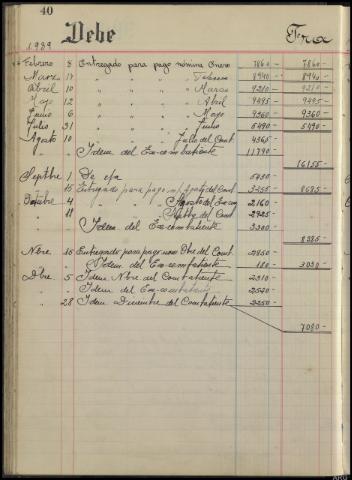 40
Debe
Fra
1939
Febrero 8 Entregado para pago nómina Enero 7860 - 7860 -
Marzo 17 " " " " Febrero 8940 - 8940 -
Abril 10 " " " " Marzo 9210 - 9210 -
Mayo 12 " " " " Abril 9495 - 9495 -
Junio 6 " " " " Mayo 9360 - 9360 -
Julio 31 " " " " Junio 5490 - 5490 -
Agosto 10 " " " Julio del Comt 4365 -
" " Idem del Ex-combatiente 11790
16155 -
Septbre 1 De
15 Entregado para pago n/ Agosto del Comt 3255 - 8685 -
Octubre 4 " " " Agosto del Ex-com 2160
" 11 " " " Septbre del Comt 2925
Idem del Ex-combatiente 3300
8385 -
Nbre 15 Entregado para pago nom Obre del Comt 2850
" Idem del Ex-combatiente 180 3030 -
Dbre 5 Idem Nbre del Combatiente 2310
" " Idem del Ex-combatiente 2520
" 28 Idem Diciembre del Combatiente 2250
7080 -